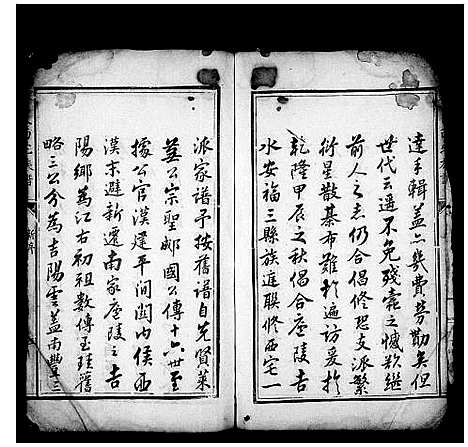 達手輯蓋亦幾費苦勤矣但
世代云遥不免殘竄之憾欲繼
前人之志仍合倡修恐支派繁
衍星散棊布雖於遍访爰於
乾隆甲辰之秋倡合庐陵吉
水安福三縣族進聯修西宅一
派家譜予按舊谱自先賢莱
蕪公宗聖郕國公傳十六世至
據公官漢建平間関内侯西
漢末避新遷南家庐陵之吉
陽鄉為江右初祖數傳至珪舊
略三公分為吉陽雲蓋南豐三